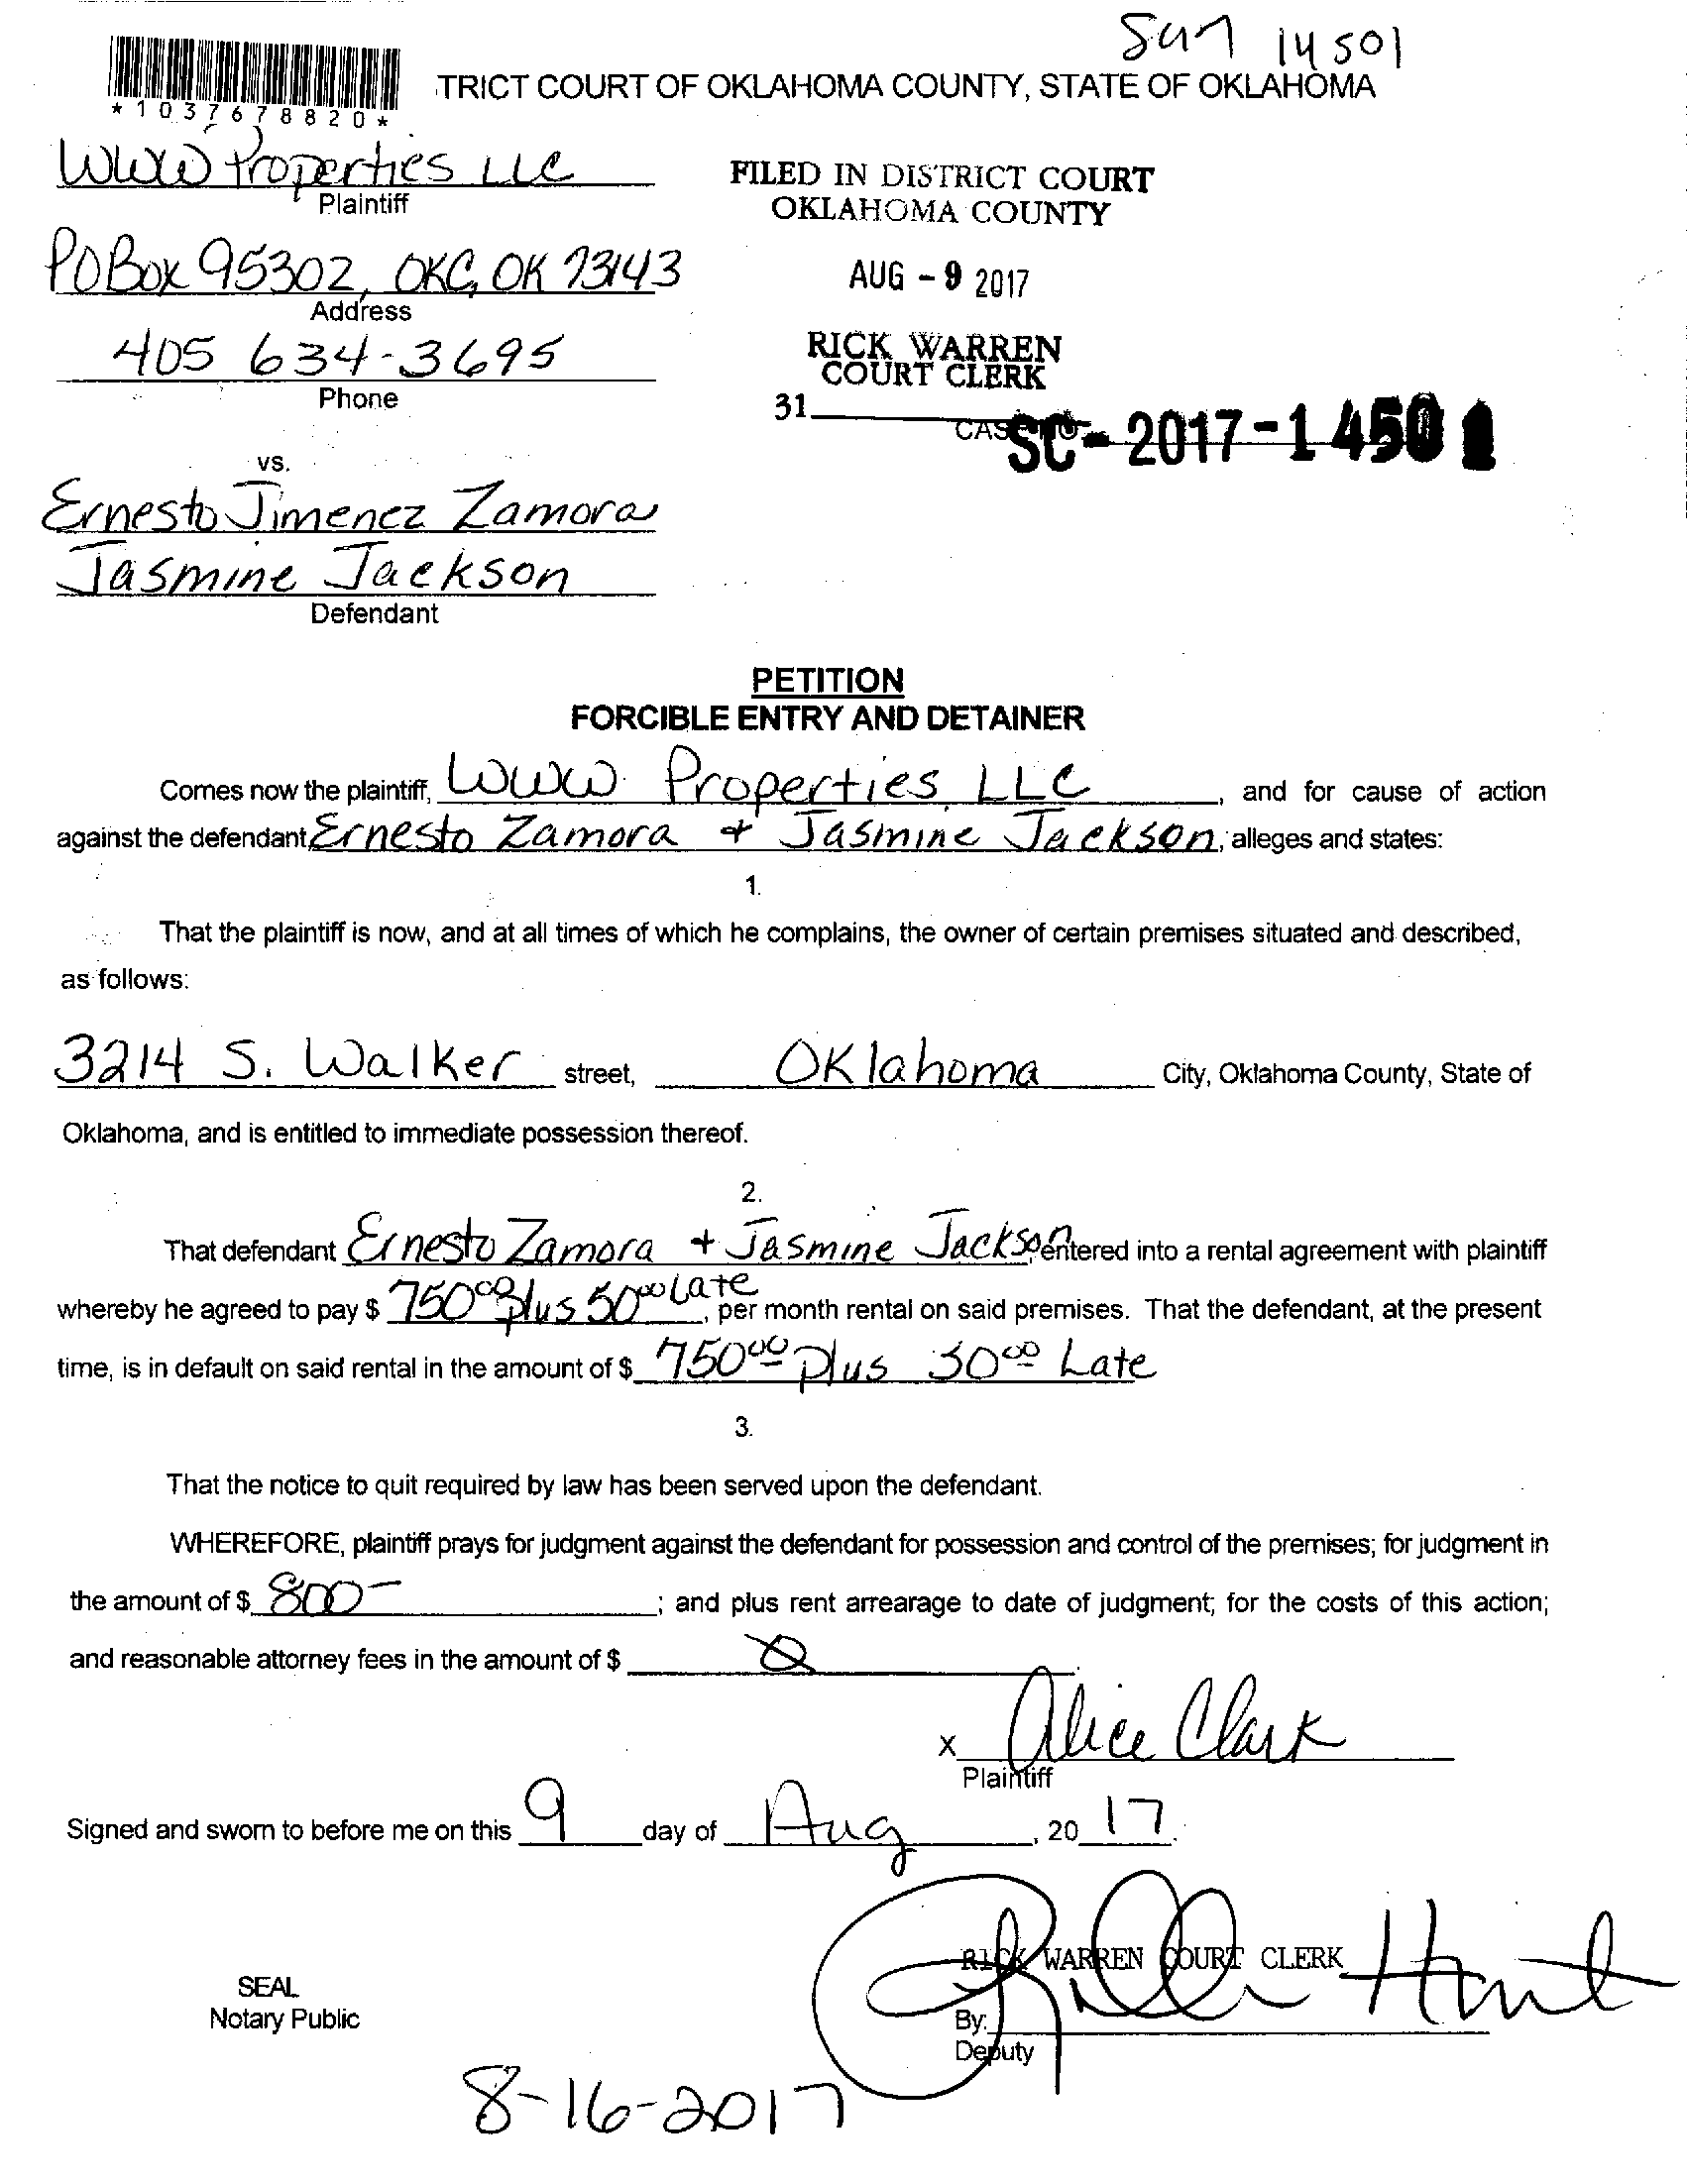 14501
TRICT COURT OF OKLAHOMA COUNTY, STATE OF OKLAHOMA
*1037678820*
WWW Properties LLC
Plaintiff
FILED IN DISTRICT COURT
OKLAHOMA COUNTY
PO Box 95302, OKC, OK 73143
Address
AUG - 9 2017
405 634-3695
Phone
RICK WARREN
COURT CLERK
31
SC-2017-14501
vs.
Ernesto Jimenez Zamora
Jasmine Jackson
Defendant
PETITION
FORCIBLE ENTRY AND DETAINER
Comes now the plaintiff, WWW Properties LLC, and for cause of action
against the defendant, Ernesto Zamora + Jasmine Jackson, alleges and states:
1.
That the plaintiff is now, and at all times of which he complains, the owner of certain premises situated and described,
as follows:
3214 S. Walker street, Oklahoma City, Oklahoma County, State of
Oklahoma, and is entitled to immediate possession thereof.
2.
That defendant Ernesto Zamora + Jasmine Jackson, entered into a rental agreement with plaintiff
whereby he agreed to pay $ 750 00 plus 50 00 Late, per month rental on said premises. That the defendant, at the present
time, is in default on said rental in the amount of $ 750 00 plus 50 00 Late
3.
That the notice to quit required by law has been served upon the defendant.
WHEREFORE, plaintiff prays for judgment against the defendant for possession and control of the premises; for judgment in
the amount of $ 800-; and plus rent arrearage to date of judgment; for the costs of this action;
and reasonable attorney fees in the amount of $
x Alice Clark
Plaintiff
Signed and sworn to before me on this 9 day of Aug, 20 17.
RICK WARREN COURT CLERK
SEAL
Notary Public
By:
Deputy
8-16-2017